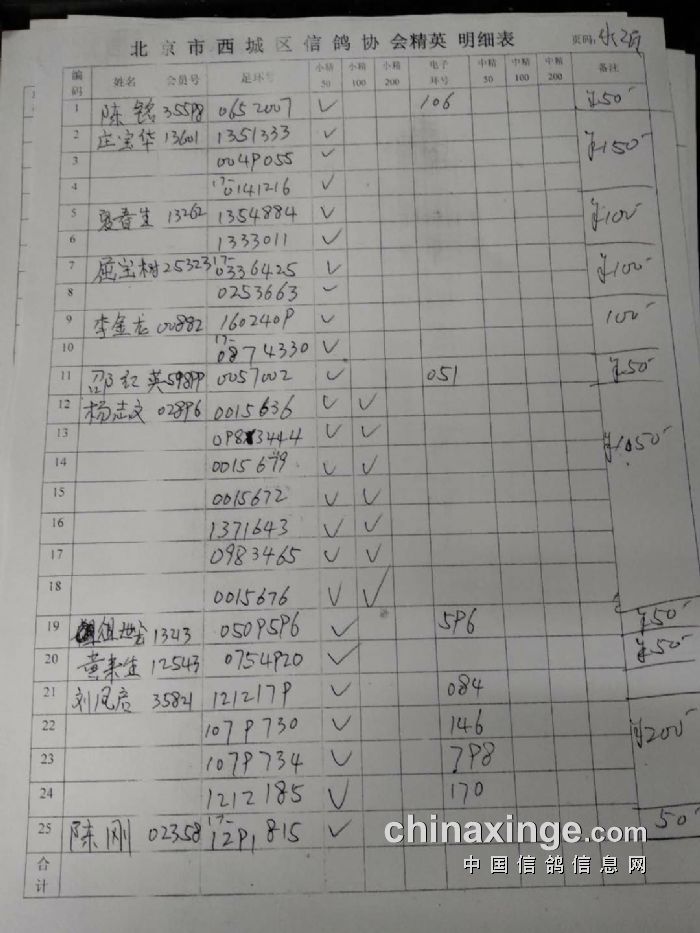 北京市西城区信鸽协会精英 明细表 页码:
编码 姓名 会员号 足环号 小精50 小精100 小精200 电子环号 中精50 中精100 中精200 备注
1 陈铭 35598 0652007 ✓ 106 ¥50
2 庄宝华 13601 1351333 ✓ ¥150
3 0049055 ✓
4 17-0141216 ✓
5 春生 13262 1354884 ✓ ¥100
6 1333011 ✓
7 屈宝树 25323 17-0336425 ✓ ¥100
8 0253663 ✓
9 李金龙 00882 1602409 ✓ 100
10 17-0874330 ✓
11 邵红英 59899 0057002 ✓ 051 ¥50
12 杨志文 02896 0015636 ✓ ✓ ¥1050
13 0983444 ✓ ✓
14 ✓ ✓
15 0015672 ✓ ✓
16 1371643 ✓ ✓
17 0983465 ✓ ✓
18 0015676 ✓ ✓
19 1343 0509596 ✓ 596 ¥50
20 黄来生 12543 0754920 ✓ ¥50
21 刘凤启 35821 1212179 ✓ 084
22 1079730 ✓ 146 ¥200
23 1079734 ✓ 798
24 1212185 ✓ 170
25 陈刚 02358 17-1291815 ✓ 50
合计
chinaxinge.com
中国信鸽信息网